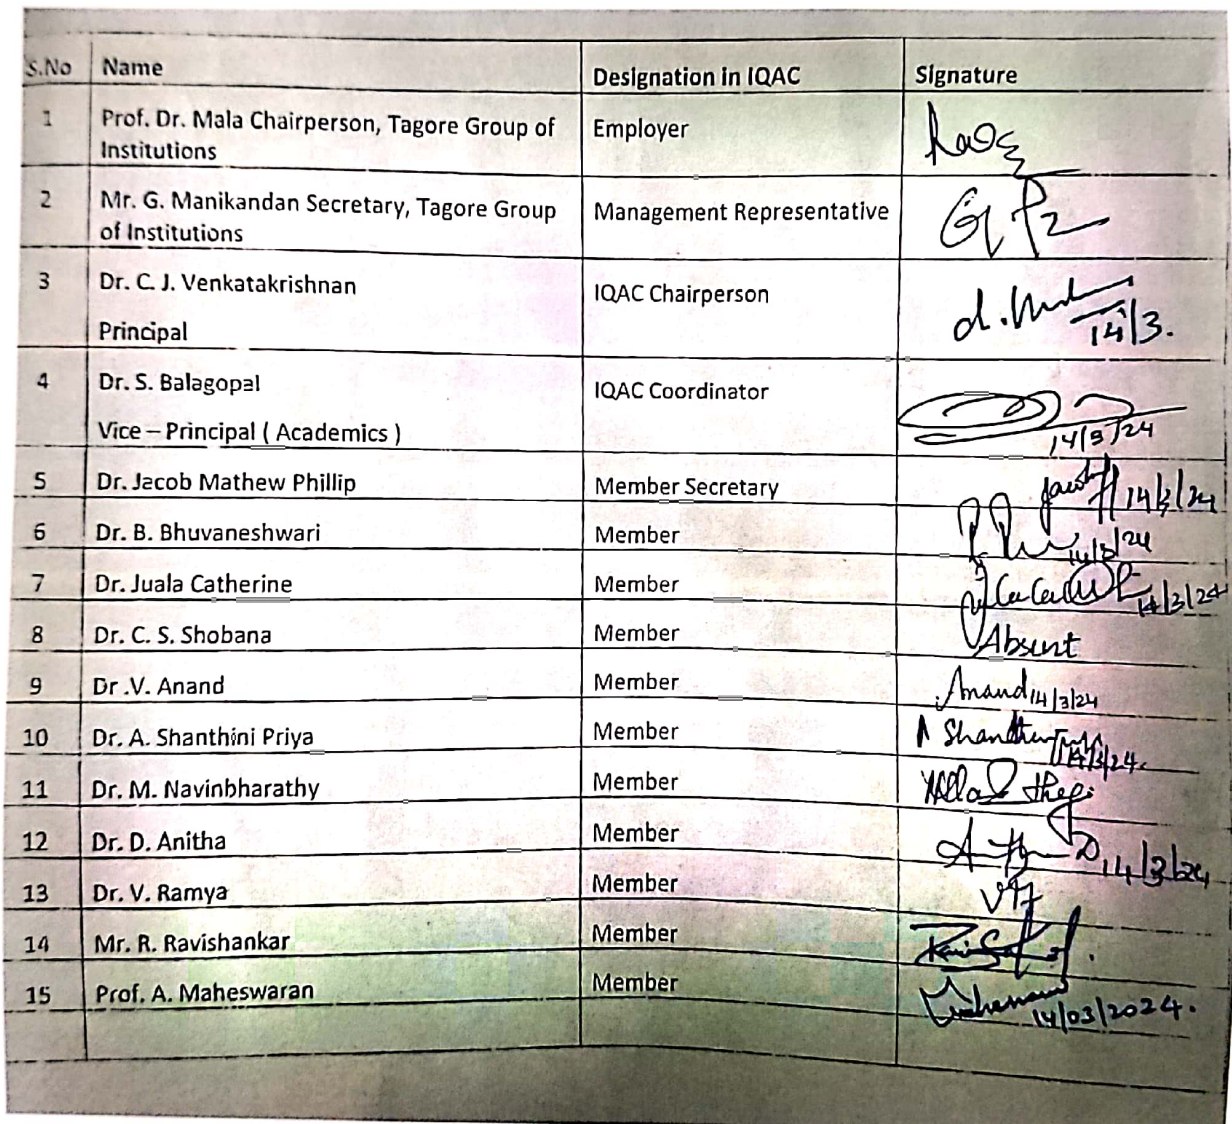 S.No Name Designation in IQAC Signature
1 Prof. Dr. Mala Chairperson, Tagore Group of Employer
Institutions
2 Mr. G. Manikandan Secretary, Tagore Group Management Representative
of Institutions
3 Dr. C. J. Venkatakrishnan IQAC Chairperson
Principal 14/3.
4 Dr. S. Balagopal IQAC Coordinator
Vice – Principal ( Academics ) 14/3/24
5 Dr. Jacob Mathew Phillip Member Secretary Jacob 14/3/24
6 Dr. B. Bhuvaneshwari Member 14/3/24
7 Dr. Juala Catherine Member 14/3/24
8 Dr. C. S. Shobana Member Absent
9 Dr .V. Anand Member Anand 14/3/24
10 Dr. A. Shanthini Priya Member 14/3/24.
11 Dr. M. Navinbharathy Member
12 Dr. D. Anitha Member 14/3/24
13 Dr. V. Ramya Member
14 Mr. R. Ravishankar Member
15 Prof. A. Maheswaran Member
14/03/2024.